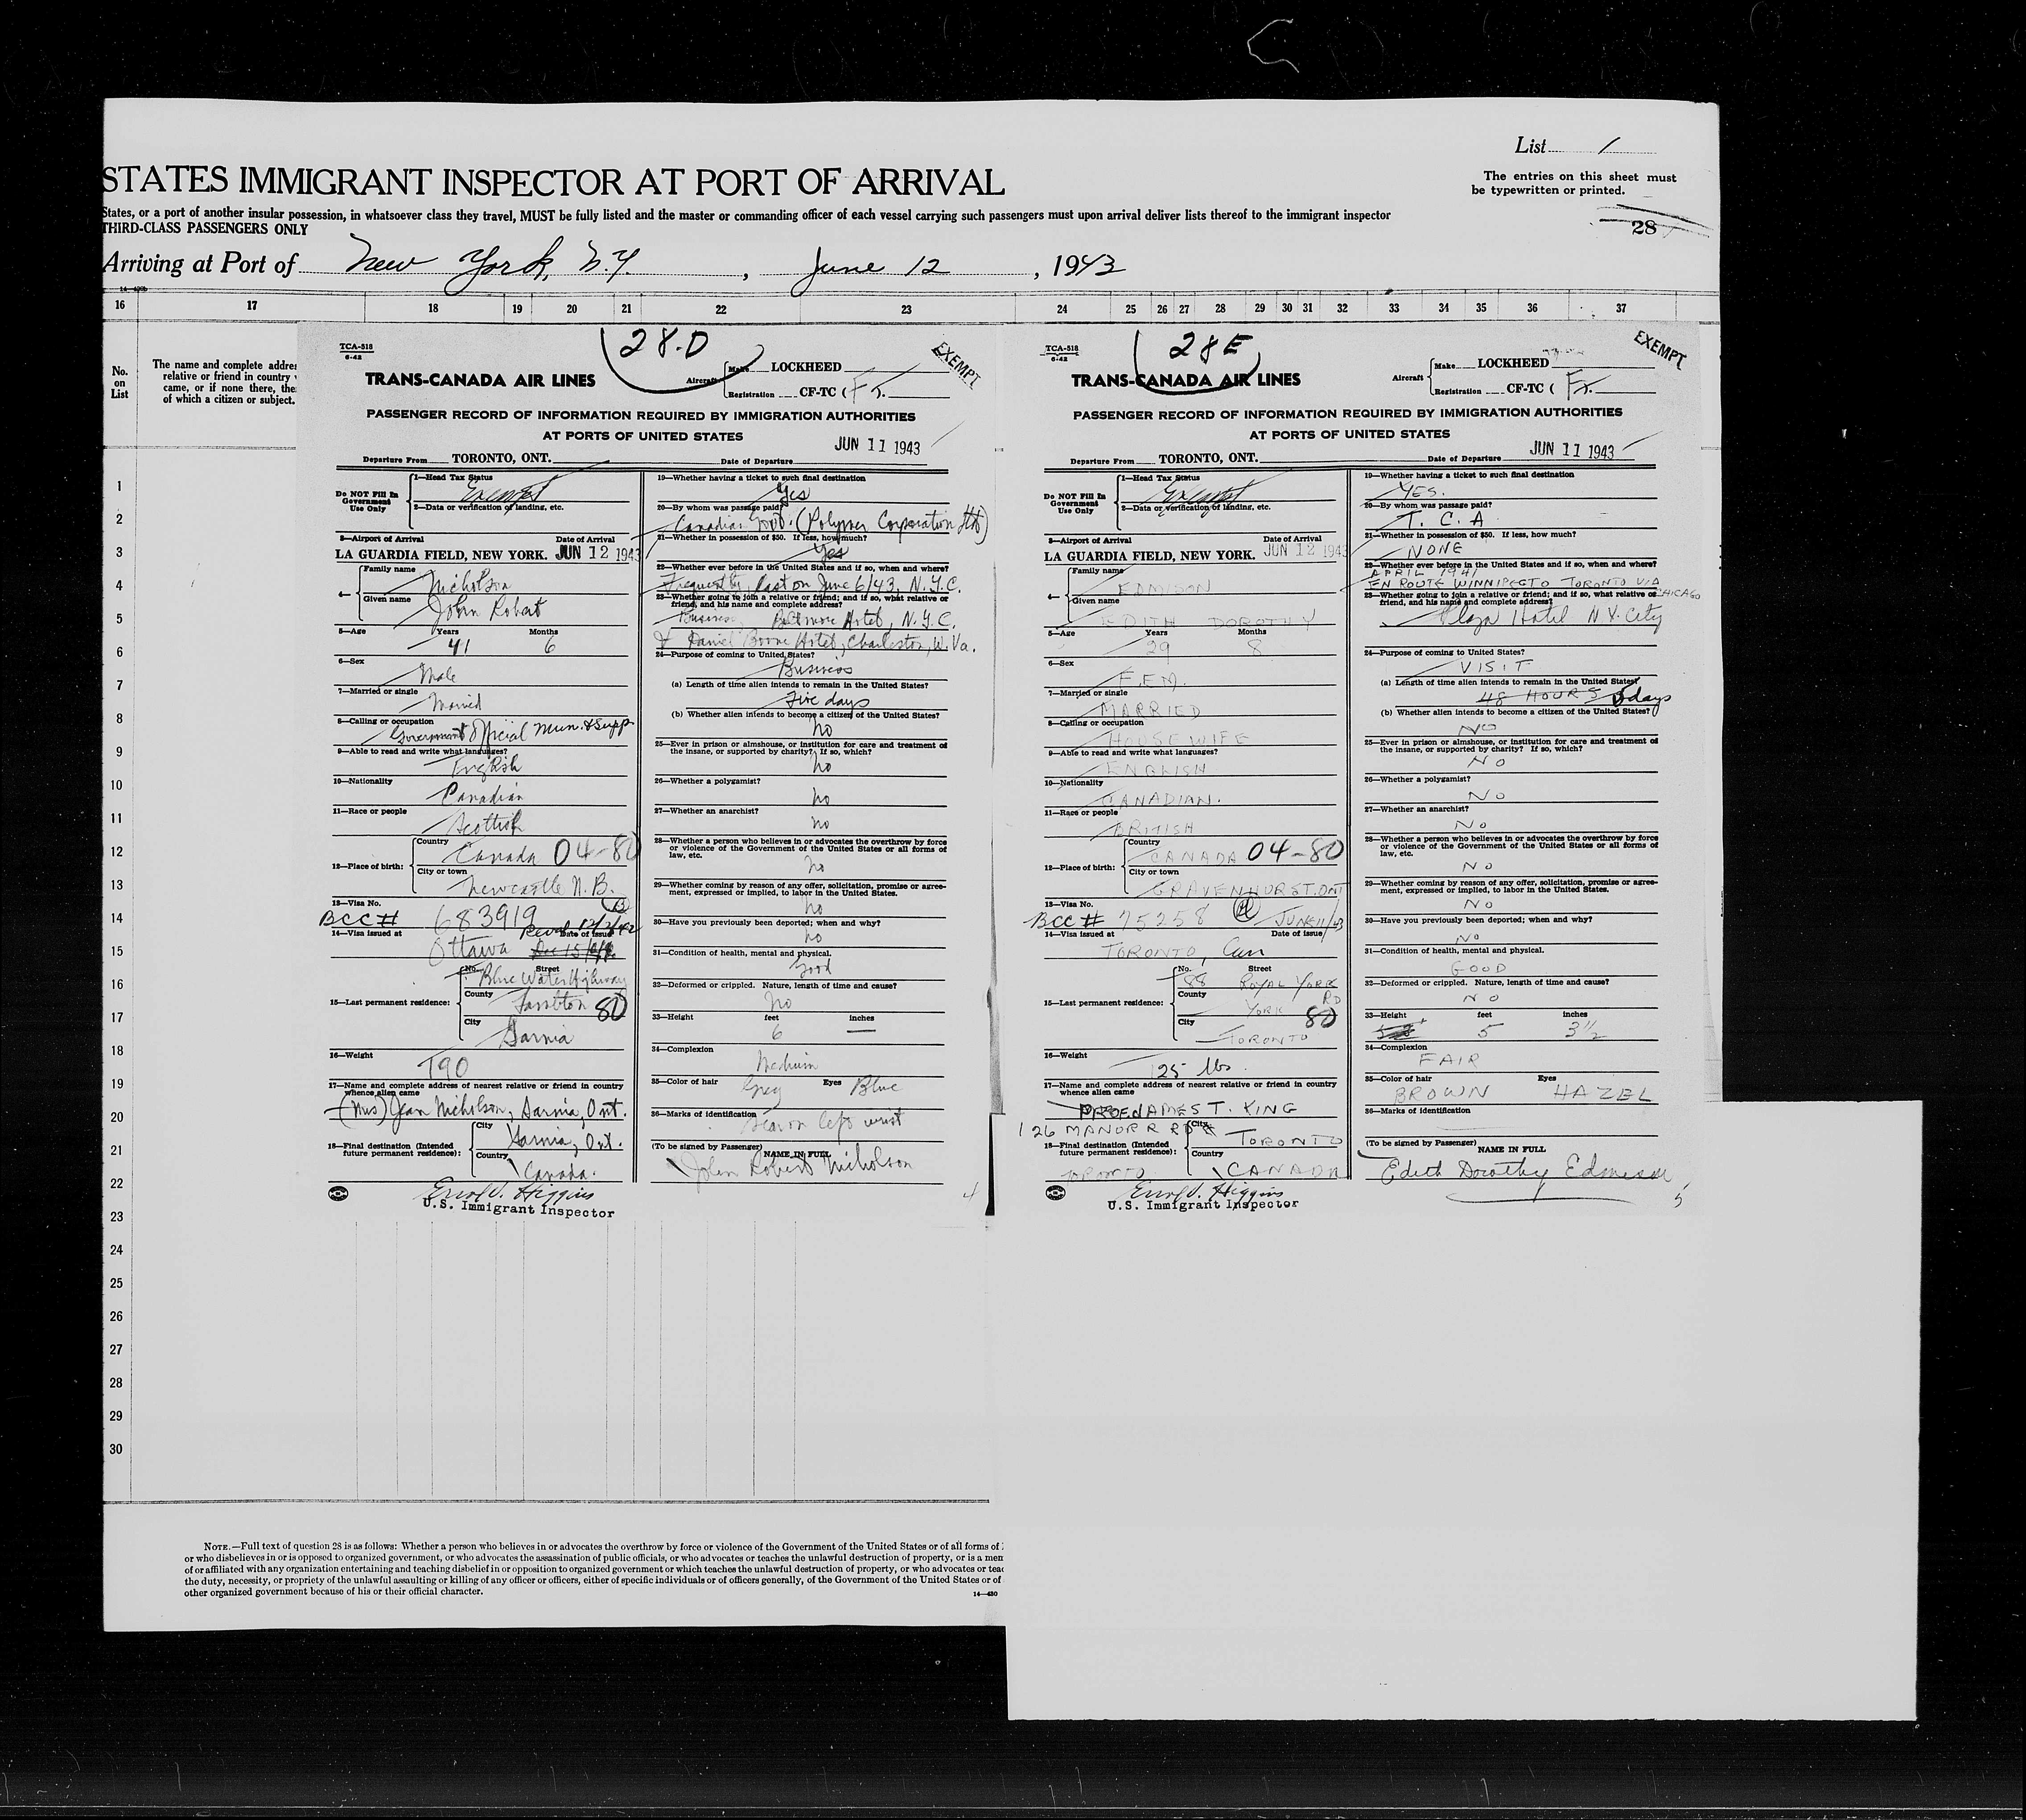 List 1
STATES IMMIGRANT INSPECTOR AT PORT OF ARRIVAL
The entries on this sheet must
be typewritten or printed.
States, or a port of another insular possession, in whatsoever class they travel, MUST be fully listed and the master or commanding officer of each vessel carrying such passengers must upon arrival deliver lists thereof to the immigrant inspector
THIRD-CLASS PASSENGERS ONLY
28
Arriving at Port of New York, N.Y., June 12, 1943
16 17 18 19 20 21 22 23 24 25 26 27 28 29 30 31 32 33 34 35 36 37
No.
on
List
The name and complete addre
relative or friend in country
came, or if none there, the
of which a citizen or subject.
1
2
3
4
5
6
7
8
9
10
11
12
13
14
15
16
17
18
19
20
21
22
23
24
25
26
27
28
29
30
TCA-518
6-42
28-D
EXEMPT
TRANS-CANADA AIR LINES
Aircraft
Make LOCKHEED
Registration CF-TC (
PASSENGER RECORD OF INFORMATION REQUIRED BY IMMIGRATION AUTHORITIES
AT PORTS OF UNITED STATES
JUN 11 1943
Departure From TORONTO, ONT. Date of Departure
Do NOT Fill In
Government
Use Only
1—Head Tax Status
Exempt
2—Data or verification of landing, etc.
3—Airport of Arrival Date of Arrival
LA GUARDIA FIELD, NEW YORK. JUN 12 1943
4—
Family name
Nicholson
Given name
John Robert
5—Age Years Months
41 6
6—Sex
Male
7—Married or single
Married
8—Calling or occupation
Government Official Mun. & Supp
9—Able to read and write what languages?
English
10—Nationality
Canadian
11—Race or people
Scottish
12—Place of birth:
Country
Canada 04-80
City or town
Newcastle N.B.
13—Visa No.
BCC# 683919
14—Visa issued at Date of issue
Ottawa
15—Last permanent residence:
No. Street
Blue Water Highway
County
Lambton 80
City
Sarnia
16—Weight
190
17—Name and complete address of nearest relative or friend in country
whence alien came
(Mrs) Jean Nicholson, Sarnia, Ont.
18—Final destination (Intended
future permanent residence):
City
Sarnia, Ont.
Country
Canada.
U.S. Immigrant Inspector
19—Whether having a ticket to such final destination
Yes
20—By whom was passage paid?
Canadian Govt. (Polymer Corporation Ltd)
21—Whether in possession of $50. If less, how much?
Yes
22—Whether ever before in the United States and if so, when and where?
Frequently, last on June 6/43, N.Y.C.
23—Whether going to join a relative or friend; and if so, what relative or
friend, and his name and complete address?
Business, Biltmore Hotel, N.Y.C.
& Daniel Boone Hotel, Charleston, W. Va.
24—Purpose of coming to United States?
Business
(a) Length of time alien intends to remain in the United States?
Five days
(b) Whether alien intends to become a citizen of the United States?
No
25—Ever in prison or almshouse, or institution for care and treatment of
the insane, or supported by charity? If so, which?
No
26—Whether a polygamist?
No
27—Whether an anarchist?
No
28—Whether a person who believes in or advocates the overthrow by force
or violence of the Government of the United States or all forms of
law, etc.
No
29—Whether coming by reason of any offer, solicitation, promise or agree-
ment, expressed or implied, to labor in the United States.
No
30—Have you previously been deported; when and why?
No
31—Condition of health, mental and physical.
Good
32—Deformed or crippled. Nature, length of time and cause?
No
33—Height feet inches
6 —
34—Complexion
Medium
35—Color of hair Eyes
Grey Blue
36—Marks of identification
Scar on left wrist
(To be signed by Passenger) NAME IN FULL
John Robert Nicholson
4
TCA-518
6-42
28E
EXEMPT
TRANS-CANADA AIR LINES
Aircraft
Make LOCKHEED
Registration CF-TC (
PASSENGER RECORD OF INFORMATION REQUIRED BY IMMIGRATION AUTHORITIES
AT PORTS OF UNITED STATES
JUN 11 1943
Departure From TORONTO, ONT. Date of Departure
Do NOT Fill In
Government
Use Only
1—Head Tax Status
Exempt
2—Data or verification of landing, etc.
3—Airport of Arrival Date of Arrival
LA GUARDIA FIELD, NEW YORK. JUN 12 1943
4—
Family name
EDMISON
Given name
EDITH DOROTHY
5—Age Years Months
29 8
6—Sex
FEM.
7—Married or single
MARRIED
8—Calling or occupation
HOUSEWIFE
9—Able to read and write what languages?
ENGLISH
10—Nationality
CANADIAN.
11—Race or people
BRITISH
12—Place of birth:
Country
CANADA 04-80
City or town
GRAVENHURST. ONT
13—Visa No.
BCC # 75258 JUNE 11/43
14—Visa issued at Date of issue
TORONTO, Can
15—Last permanent residence:
No. Street
88 ROYAL YORK
RD
County
YORK 80
City
TORONTO
16—Weight
125 lbs.
17—Name and complete address of nearest relative or friend in country
whence alien came
JAMES T. KING
126 MANOR RD E
TORONTO
18—Final destination (Intended
future permanent residence):
City
TORONTO
Country
CANADA
U.S. Immigrant Inspector
19—Whether having a ticket to such final destination
YES.
20—By whom was passage paid?
T. C. A
21—Whether in possession of $50. If less, how much?
NONE
22—Whether ever before in the United States and if so, when and where?
APRIL 1941
EN ROUTE WINNIPEG TO TORONTO VIA CHICAGO
23—Whether going to join a relative or friend; and if so, what relative or
friend, and his name and complete address?
Plaza Hotel N Y. City
24—Purpose of coming to United States?
VISIT
(a) Length of time alien intends to remain in the United States?
48 HOURS 5 days
(b) Whether alien intends to become a citizen of the United States?
NO
25—Ever in prison or almshouse, or institution for care and treatment of
the insane, or supported by charity? If so, which?
NO
26—Whether a polygamist?
NO
27—Whether an anarchist?
NO
28—Whether a person who believes in or advocates the overthrow by force
or violence of the Government of the United States or all forms of
law, etc.
NO
29—Whether coming by reason of any offer, solicitation, promise or agree-
ment, expressed or implied, to labor in the United States.
NO
30—Have you previously been deported; when and why?
NO
31—Condition of health, mental and physical.
GOOD
32—Deformed or crippled. Nature, length of time and cause?
NO
33—Height feet inches
5 3½
34—Complexion
FAIR
35—Color of hair Eyes
BROWN HAZEL
36—Marks of identification
(To be signed by Passenger) NAME IN FULL
Edith Dorothy Edmison
5
NOTE.—Full text of question 28 is as follows: Whether a person who believes in or advocates the overthrow by force or violence of the Government of the United States or of all forms of
or who disbelieves in or is opposed to organized government, or who advocates the assassination of public officials, or who advocates or teaches the unlawful destruction of property, or is a mem
of or affiliated with any organization entertaining and teaching disbelief in or opposition to organized government or which teaches the unlawful destruction of property, or who advocates or teac
the duty, necessity, or propriety of the unlawful assaulting or killing of any officer or officers, either of specific individuals or of officers generally, of the Government of the United States or of
other organized government because of his or their official character.
14—430